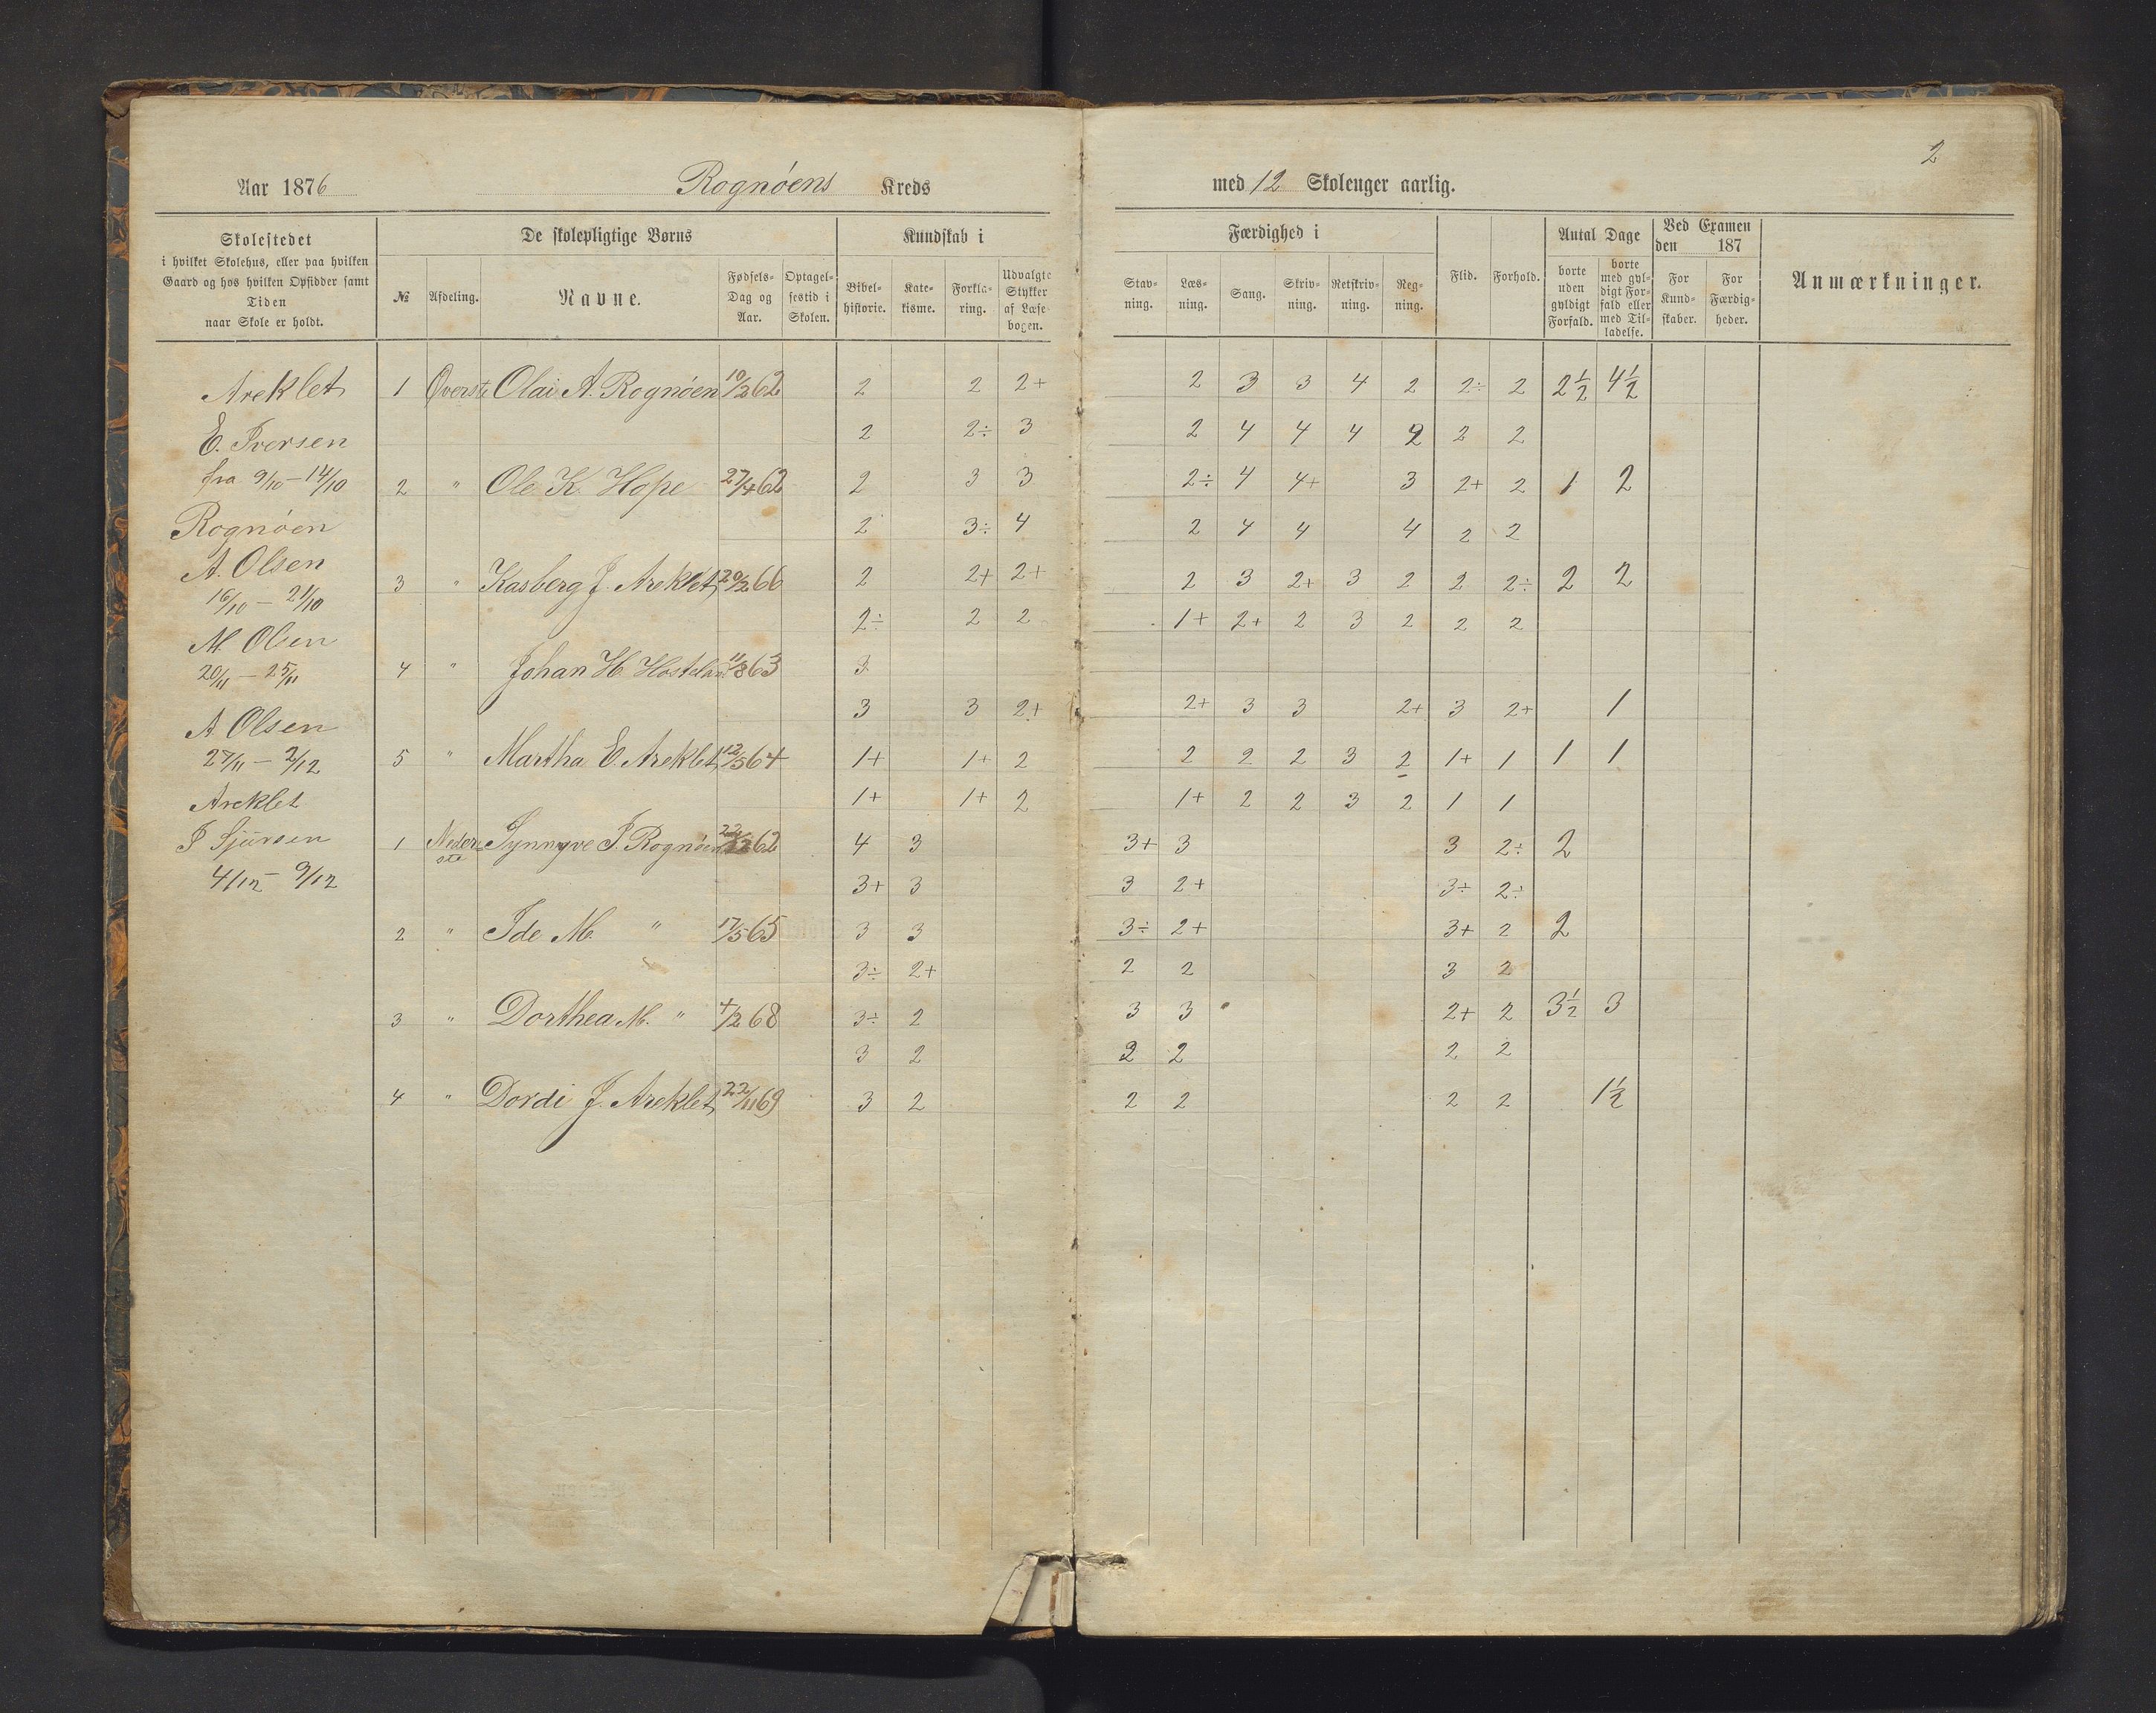 2
Aar 1876 Rognøens Kreds med 12 Skoleuger aarlig.
Skolestedet
i hvilket Skolehus, eller paa hvilken
Gaard og hos hvilken Opsidder samt
Tiden
naar Skole er holdt.
De skolepligtige Børns
№ Afdeling. Navne. Fødsels-Dag og Aar. Optagelsestid i Skolen.
Kundskab i
Bibelhistorie. Katekisme. Forklaring. Udvalgte Stykker af Læsebogen.
Færdighed i
Stavning. Læsning. Sang. Skrivning. Retskrivning. Regning.
Flid. Forhold.
Antal Dage
borte uden gyldigt Forfald. borte med gyldigt Forfald eller med Tilladelse.
Ved Examen den 187
For Kundskaber. For Færdigheder.
Anmærkninger.
Areklet
E. Iversen
fra 9/10 - 14/10
Rognøen
A. Olsen
16/10 - 21/10
M. Olsen
20/11 - 25/11
A Olsen
27/11 - 2/12
Areklet
P Sjursen
4/12 - 9/12
1 Øverste Olai A. Rognøen 10/2 62 2 2 2+ 2 3 3 4 2 2÷ 2 2½ 4½
2 2÷ 3 2 4 4 4 2 2 2
2 " Ole K. Hope 27/4 62 2 3 3 2÷ 4 4+ 3 2+ 2 1 2
2 3÷ 4 2 4 4 4 2 2
3 " Kasberg J. Areklet 20/2 66 2 2+ 2+ 2 3 2+ 3 2 2 2÷ 2 2
2÷ 2 2 1+ 2+ 2 3 2 2 2
4 " Johan H. 11/8 63 3
3 3 2+ 2+ 3 3 2+ 3 2+ 1
5 " Martha E. Areklet 12/5 64 1+ 1+ 2 2 2 2 3 2 1+ 1 1 1
1+ 1+ 2 1+ 2 2 3 2 1 1
1 Nederste Synnøve P. Rognøen 62 4 3 3+ 3 3 2÷ 2
3+ 3 3 2+ 3÷ 2÷
2 " Ide M. " 17/5 65 3 3 3÷ 2+ 3+ 2 2
3÷ 2+ 2 2 3 2
3 " Dorthea M. " 4/2 68 3÷ 2 3 3 2+ 2 3½ 3
3 2 2 2 2 2
4 " Dordi J. Areklet 22/11 69 3 2 2 2 2 2 1½